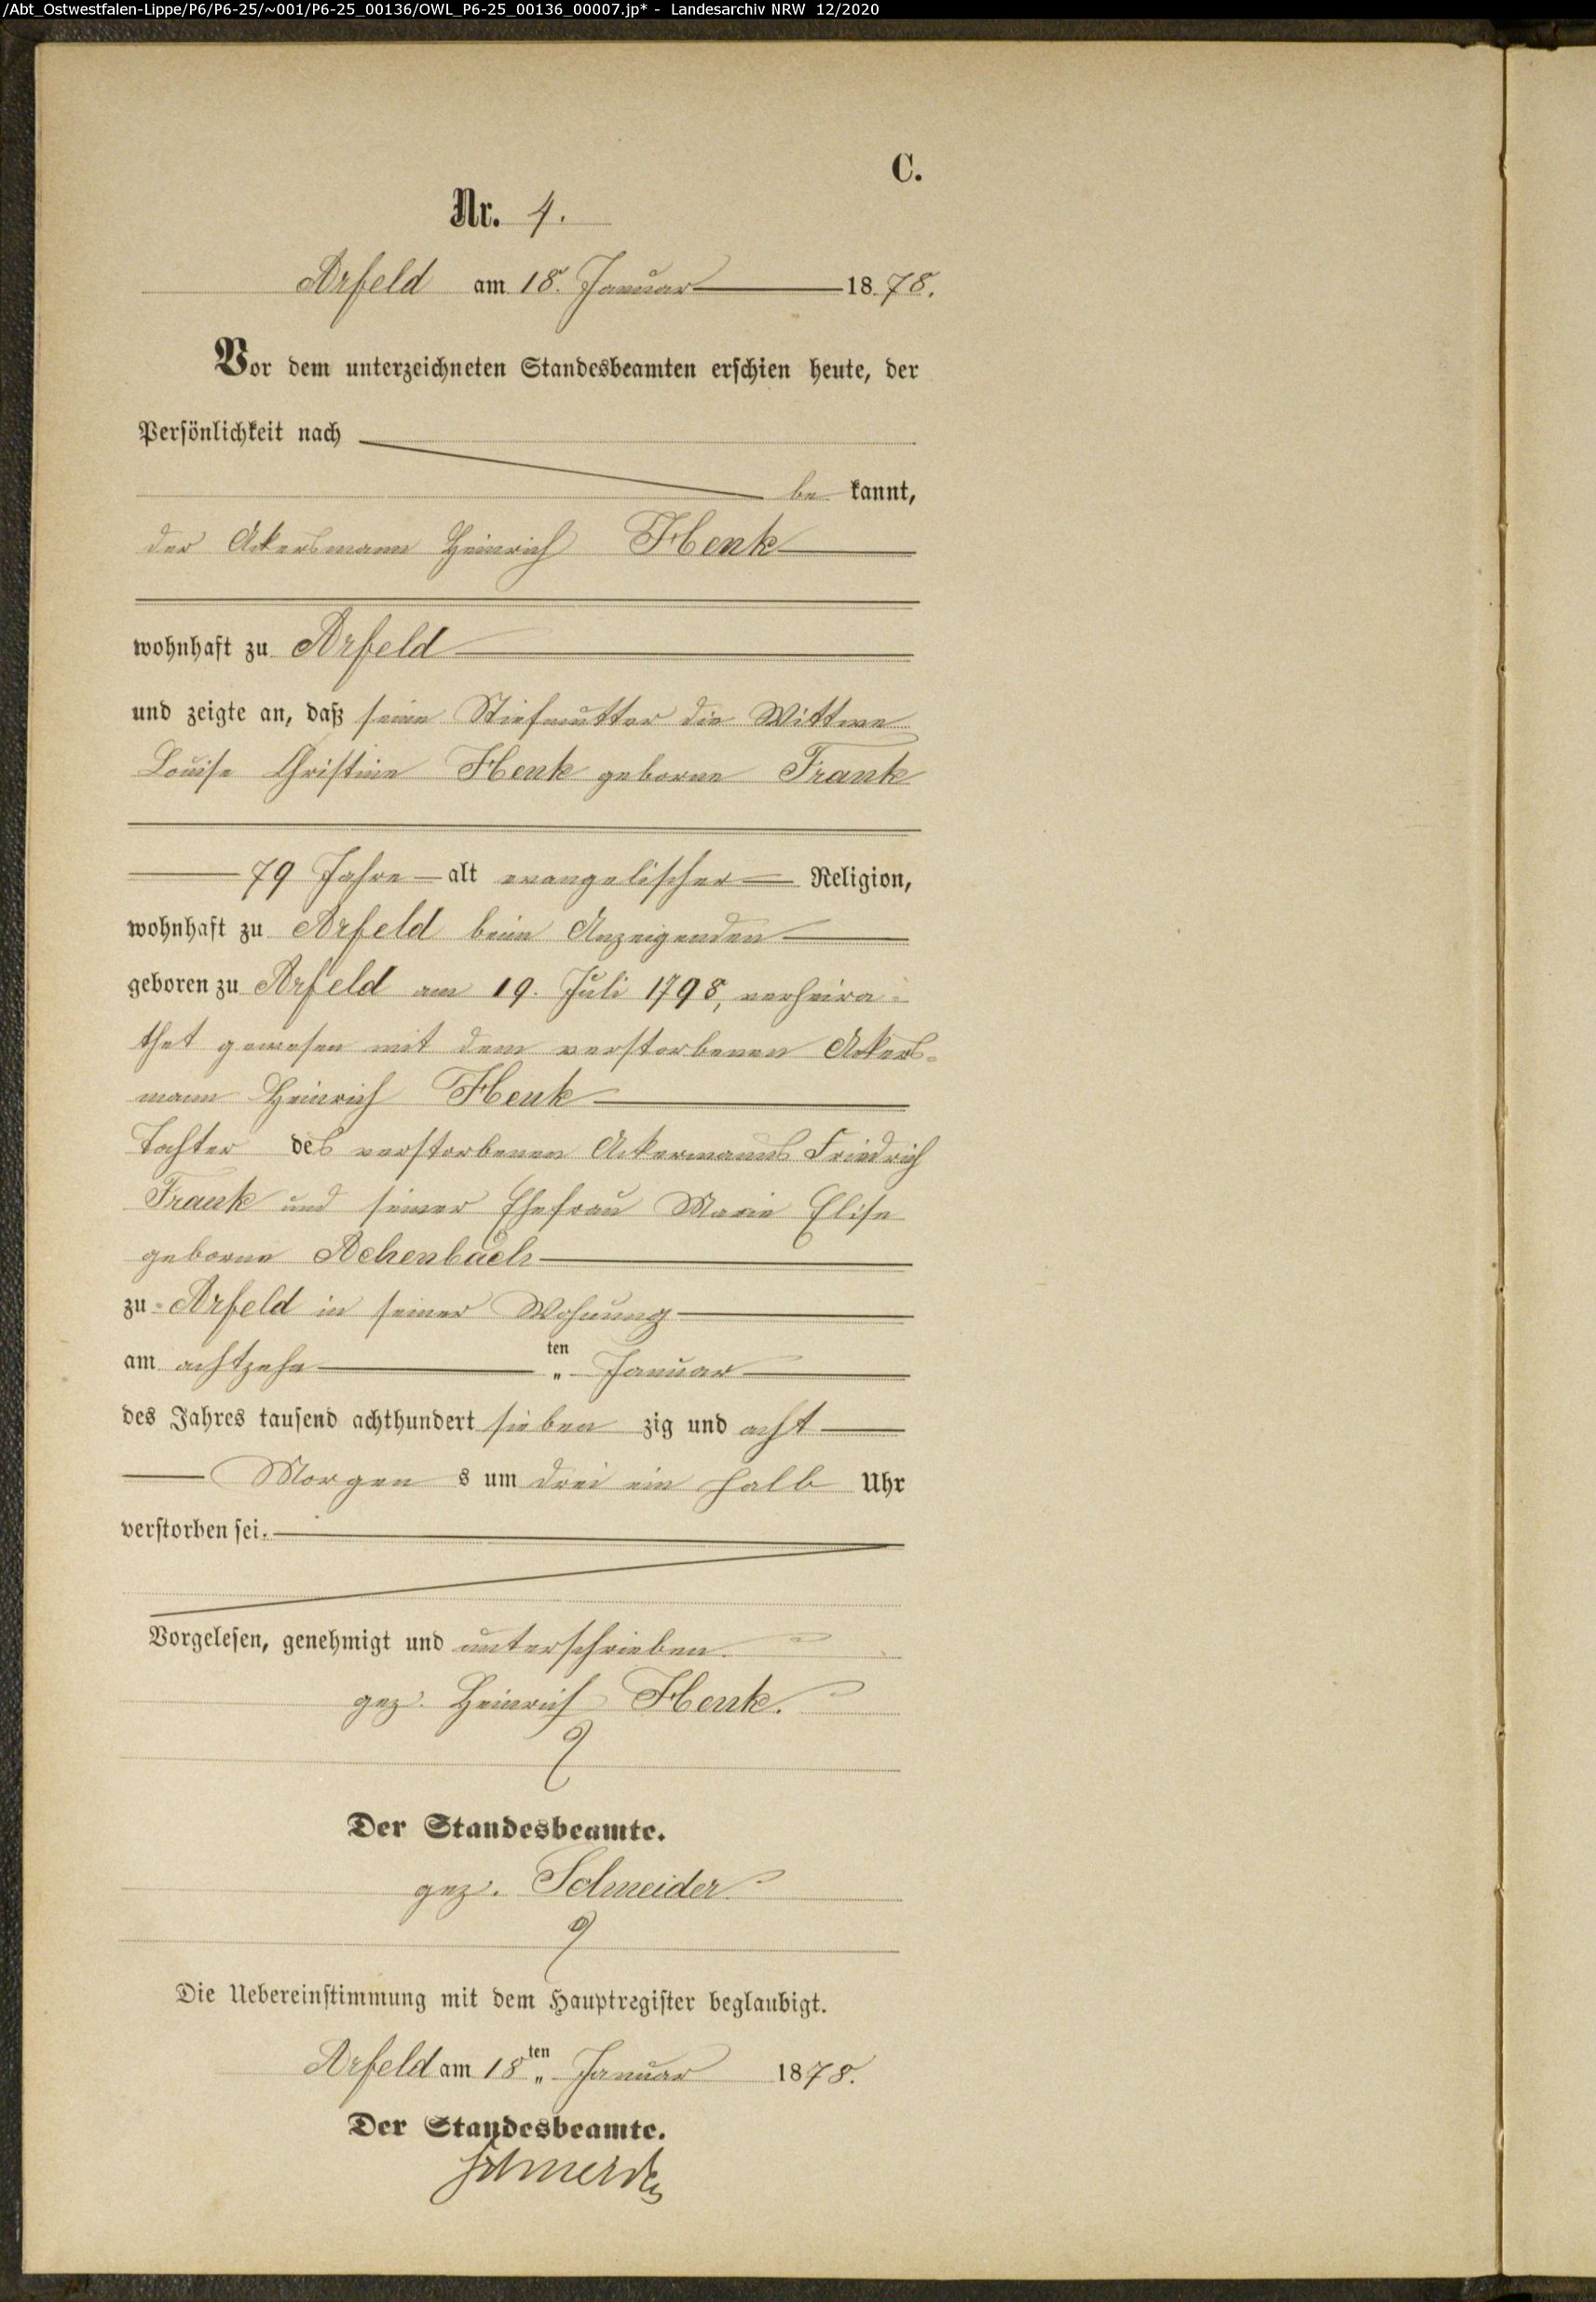 /Abt_Ostwestfalen-Lippe/P6/P6-25/~001/P6-25_00136/OWL_P6-25_00136_00007.jp* - Landesarchiv NRW 12/2020
C.
Nr. 4.
Arfeld am 18. Januar 1878.
Vor dem unterzeichneten Standesbeamten erschien heute, der
Persönlichkeit nach
be kannt,
der Ackersmann Heinrich Henk
wohnhaft zu Arfeld
und zeigte an, daß seine Stiefmutter die Wittwe
Louise Christine Henk geborne Frank
79 Jahre alt evangelischer Religion,
wohnhaft zu Arfeld beim Anzeigenden
geboren zu Arfeld am 19. Juli 1798, verheira-
thet gewesen mit dem verstorbenen Ackers-
mann Heinrich Henk
Tochter des verstorbenen Ackermanns Friedrich
Frank und seiner Ehefrau Marie Elise
geborne Achenbach
zu Arfeld in seiner Wohnung
am achtzehn ten Januar
des Jahres tausend achthundert sieben zig und acht
Morgen s um drei ein halb Uhr
verstorben sei.
Vorgelesen, genehmigt und unterschrieben.
gez. Heinrich Henk.
Der Standesbeamte.
gez. Schneider
Die Uebereinstimmung mit dem Hauptregister beglaubigt.
Arfeld am 18ten Januar 1878.
Der Standesbeamte.
Schneider